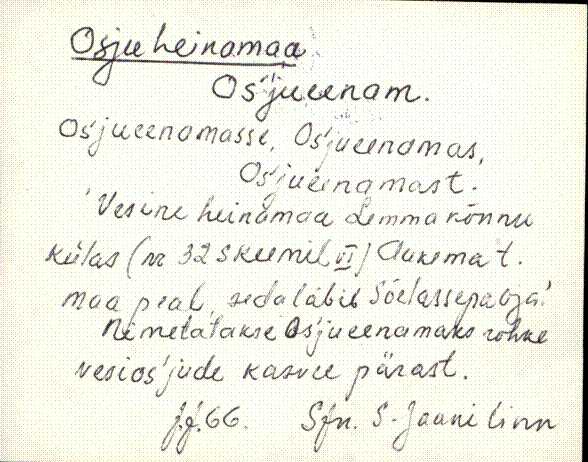 Osju heinamaa
Os'jueenam.
Os'jueenamasse, Os'jueenamas,
Os'jueenamast.
Vesine heinamaa Lemmakõnnu
külas (nr 32 skeemil VI) Aukema t.
maa peal, seda läbib Sõelassepaoja.
Nimetatakse Os'jueenamaks rohke
vesios'jude kasvu pärast.
J.J. 66. Sfn. S-Jaani linn